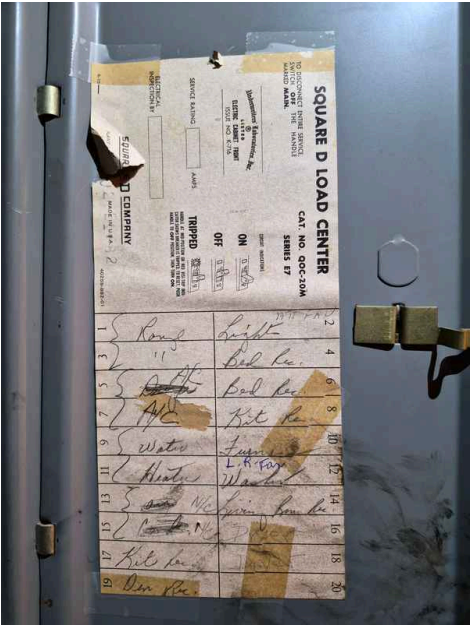 SQUARE D LOAD CENTER
TO DISCONNECT ENTIRE SERVICE
SWITCH OFF THE HANDLE
MARKED MAIN.
CAT. NO. QOC-20M
SERIES E7
Underwriters Laboratories, Inc.
LISTED
ELECTRIC CABINET FRONT
ISSUE NO. K-716
CIRCUIT INDICATORS
ON
OFF
TRIPPED
SERVICE RATING
AMPS
ELECTRICAL
INSPECTION BY
SQUARE D COMPANY
MADE IN U.S.A.
1 Range Light 2
3 " Bed Rec. 4
5 Bed Rec. 6
7 A/C Kit Re 8
9 Water Furn 10
L.R. Fan
11 Heater Washer 12
13 N/C Living Room Rec. 14
15 N/C 16
17 Kit Rec 18
19 Den Rec. 20